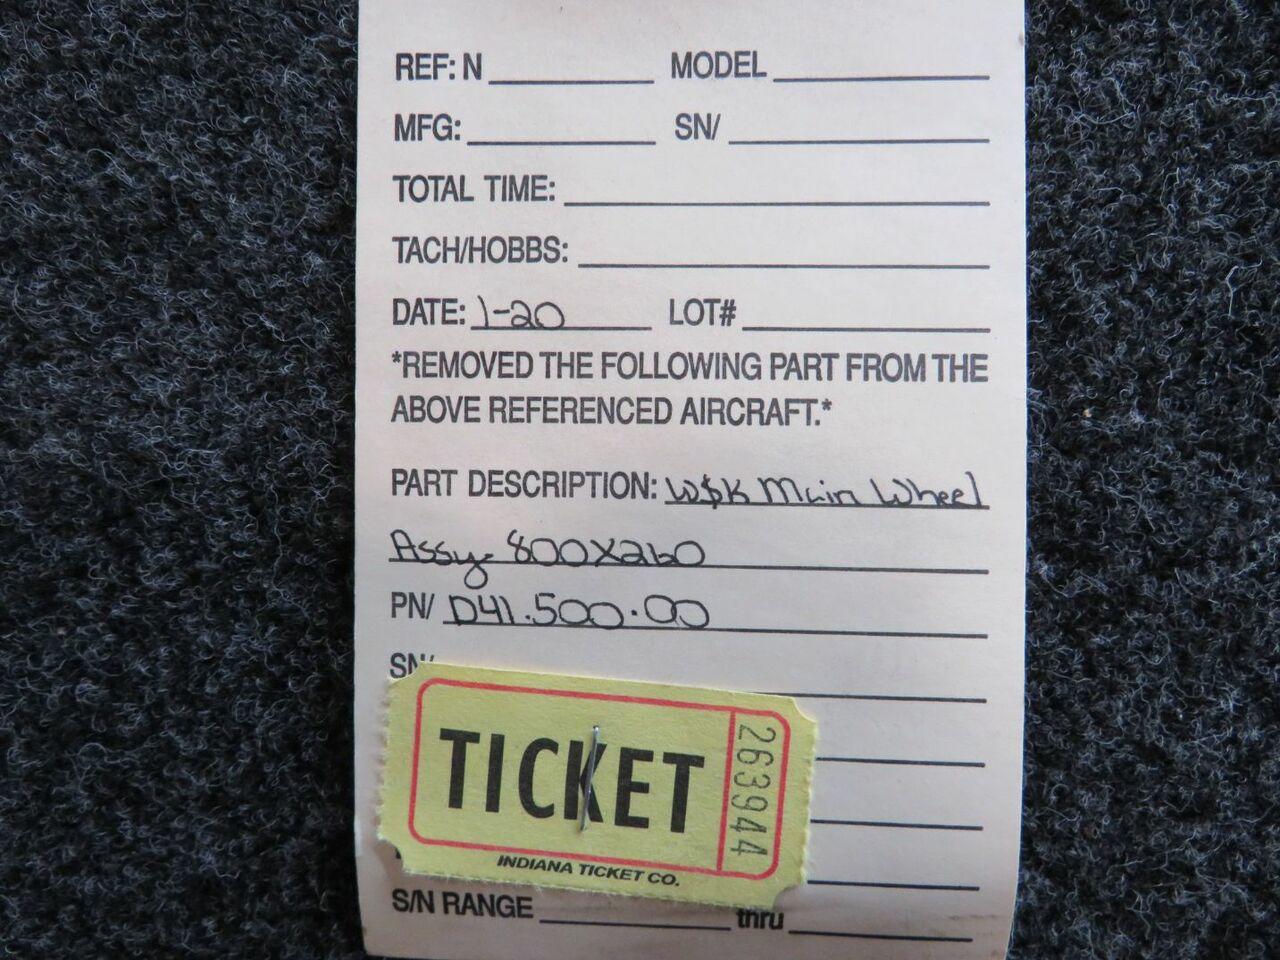 REF: N MODEL
MFG: SN/
TOTAL TIME:
TACH/HOBBS:
DATE: 1-20 LOT#
*REMOVED THE FOLLOWING PART FROM THE
ABOVE REFERENCED AIRCRAFT.*
PART DESCRIPTION: W$K Main Wheel
Assy 800X260
PN/ D41.500.00
SN/
TICKET 263944
INDIANA TICKET CO.
S/N RANGE thru